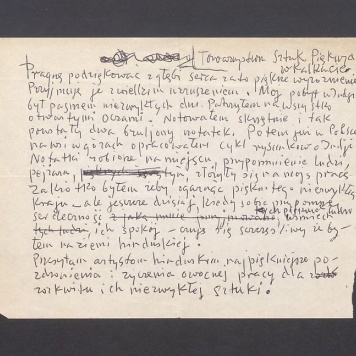 Towarzystwu Sztuk Pięknych
w Kalkucie
Pragnę podziękować z głębi serca za to piękne wyróżnienie
Przyjmuję je z wielkim wzruszeniem. Mój pobyt w Indii
był pasmem niezwykłych dni. Patrzyłem na wszystko
otwartymi oczami. Notowałem skrzętnie i tak
powstały dwa bruliony notatek. Potem już w Polsce
na wsi w górach opracowałem cykl rysunków o Indii
Notatki robione na miejscu, przypomnienie ludzi,
pejzażu, złożyły się na moją pracę
Za krótko byłem żeby ogarnąć piękno tego niezwykłego
kraju – ale jeszcze dzisiaj kiedy sobie przypomnę
serdeczność tych pięknych ludzi uśmiech
ich spokój – czuję się szczęśliwy że by-
łem na ziemi hinduskiej.
Przesyłam artystom hinduskim najpiękniejsze po-
zdrowienia i życzenia owocnej pracy dla
rozkwitu ich niezwykłej sztuki.